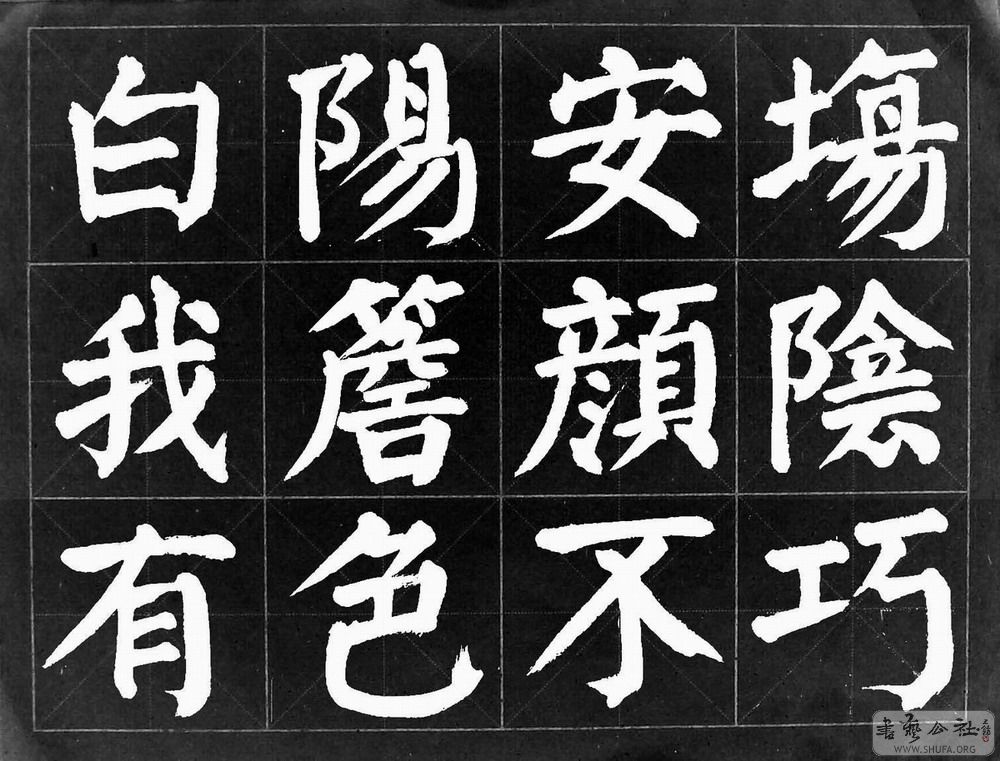 塲陰巧
安顔不
陽簷色
白我有
書藝公社
WWW.SHUFA.ORG